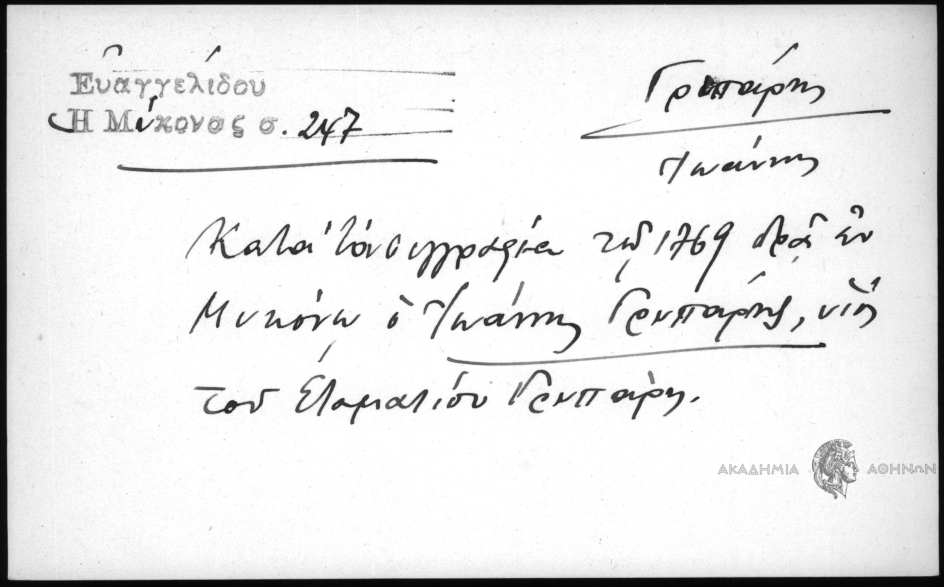 Εὐαγγελίδου
Ἡ Μύκονος σ. 247
Γρυπάρης
Ἰωάννης
Κατὰ τὸν συγγραφέα τῷ 1769 δρᾷ ἐν
Μυκόνῳ ὁ Ἰωάννης Γρυπάρης, υἱὸς
τοῦ Σταματίου Γρυπάρη.
ΑΚΑΔΗΜΙΑ ΑΘΗΝΩΝ